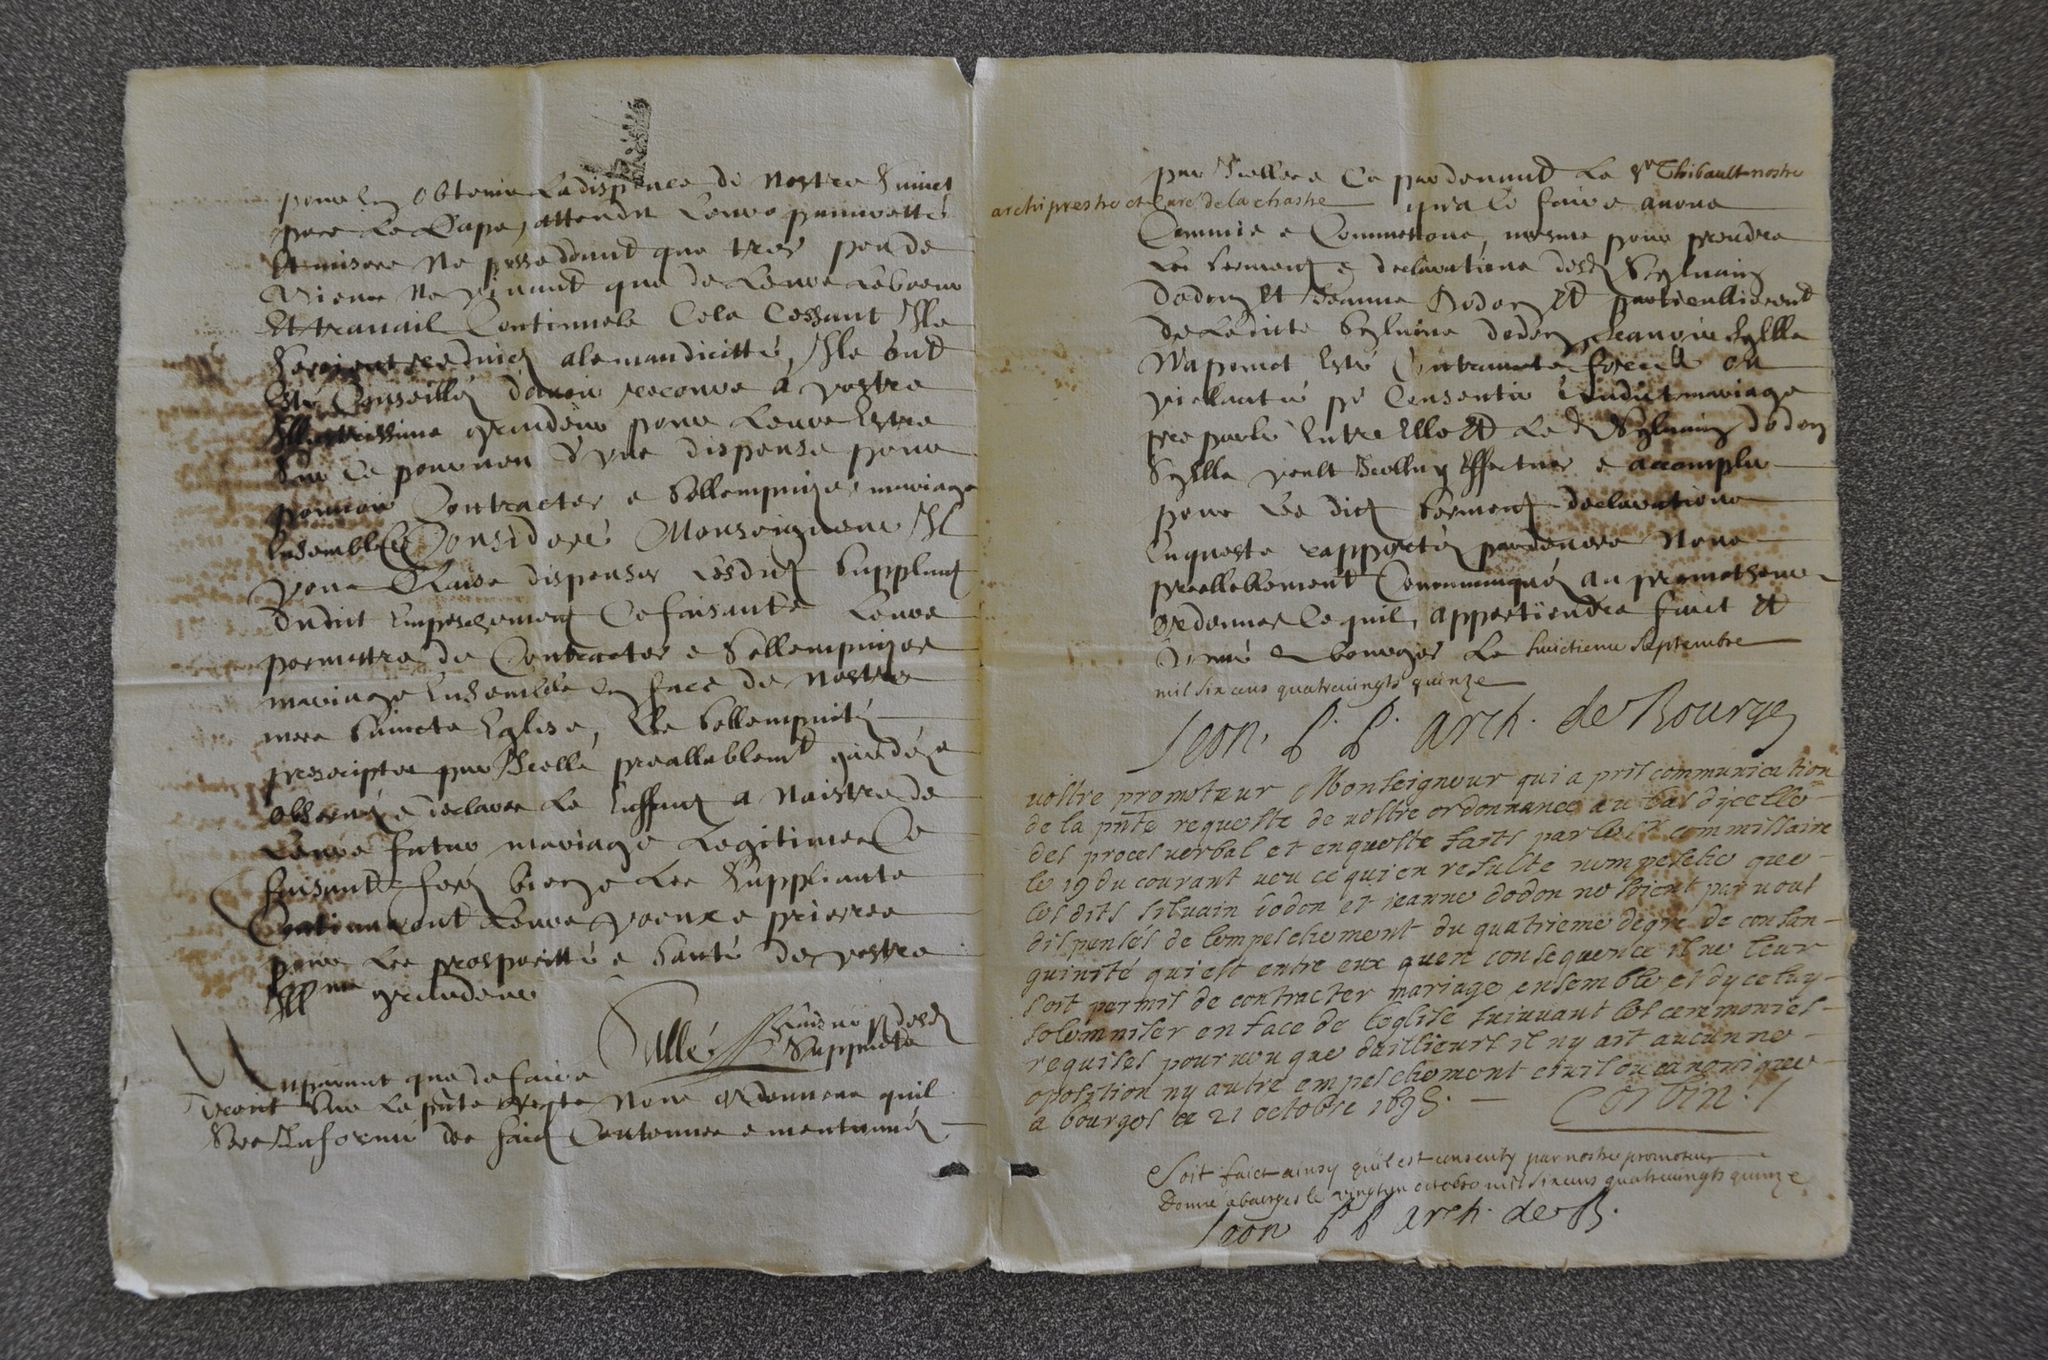 pour en obtenir la dispence de nostre sainct
pere le Pape, attendu leurs pauvretté
et misere ne possedant que tres peu de
biens ne vivant que de leurs labeurs
et travail continuels cela cessant ils
seroient reduicts a la mandicitté, ils ont
esté conseillés d'avoir recours a vostre
Illustrissime grandeur pour leurs estre
sur ce pourveu d'une dispense pour
pouvoir contracter e sollempnizer mariage
ensemble Ce Consideré Monseigneur Il
vous Plaise dispenser lesdits suppliants
dudict empeschement ce faisant leurs
permettre de contracter e sollempnizer
mariage ensemble en face de nostre
mere saincte Eglise, les sollempnités
prescriptes par Icelle preallablement gardées e
observées e declarer les enffans a naistre de
leurs futur mariage legitimes Ce
faisant ferez bien e les suppliants
continueront leurs voeux e prieres
pour les prosperitté e santé de vostre
Illme grandeur
Sallé desd
Suppliants
Auparavant que de faire
droict sur la pnte reqste nous ordonnons quil
sera Informé des faicts contenues e mentionnés
par Icelle ce pardevant le sr Thibault nostre
archiprestre et curé de la chastre qu'a ce faire avons
commis e commettons, mesme pour prendre
les serments e declarations desd Sylvain
Dodon et Jeanne Dodon et particullierement
de ladicte Dodon scavoir sy elle
n'a point esté contrainte forcée ou
viollantée de consentir audict mariage
proparlé entre elle et led Sylvain Dodon
sy elle veult Icelluy effectuer e accomplir
pour les dicts serments declarations
enqueste rapportés pardevers nous
preallablement communiqués au promotheur
ordonner ce quil, appartiendra faict et
donné a bourges le huictieme septembre
mil six cens quatrevingts quinze
Leon P. P. arch. de Bourges
vostre promoteur Monseigneur qui a pris communication
de la pnte requeste de vostre ordonnance au bas d'jcelle
des proces verbal et enqueste faits par le sr commissaire
le 19 du courant veu ce qui en resulte nempesche que
les dits silvain dodon et jeanne dodon ne soient par vous
dispensés de lempeschement du quatrieme degre de consan-
guinité qui est entre eux quen consequence il ne leur
soit permis de contracter mariage ensemble et dyceluy
solemniser en face de leglise suivant les ceremonies
requises pourveu que dailleurs il ny ait aucunne
oposition ny autre empeschement civil ou canonique
a bourges ce 21 octobre 1695. Corbin
Soit faict ainsy qu'il est consenty par nostre promoteur
Donné a bourges le vingtun octobre mil six cens quatrevingts quinze
Leon P P arch. de B.